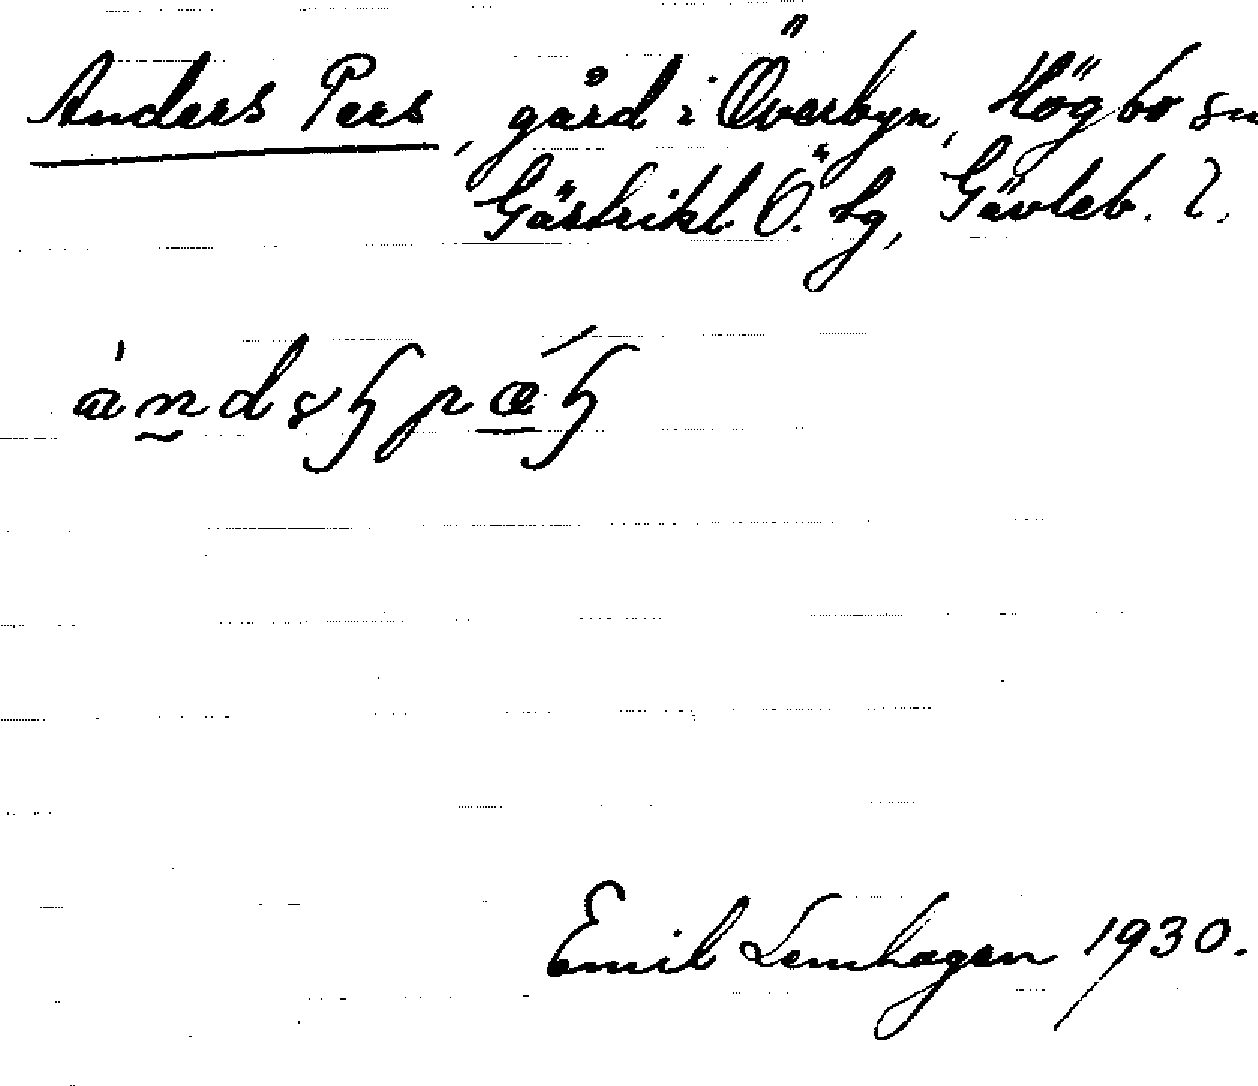 Anders Pers, gård i Överbyn, Högbo sn
Gästrikl. Ö. tg, Gävleb. l.
Emil Lenhagen 1930.